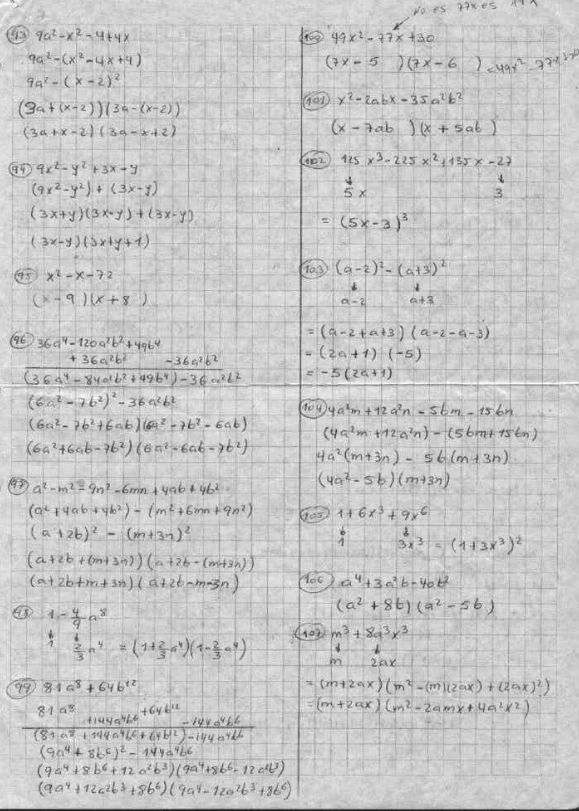 93 9a²-x²-4+4x
9a²-(x²-4x+4)
9a²-(x-2)²
(3a+(x-2))(3a-(x-2))
(3a+x-2)(3a-x+2)
94 9x²-y²+3x-y
(9x²-y²)+(3x-y)
(3x+y)(3x-y)+(3x-y)
(3x-y)(3x+y+1)
95 x²-x-72
(x-9)(x+8)
96 36a⁴-120a²b²+49b⁴
+36a²b² -36a²b²
(36a⁴-84a²b²+49b⁴)-36a²b²
(6a²-7b²)²-36a²b²
(6a²-7b²+6ab)(6a²-7b²-6ab)
(6a²+6ab-7b²)(6a²-6ab-7b²)
97 a²-m²-9n²-6mn+4ab+4b²
(a²+4ab+4b²)-(m²+6mn+9n²)
(a+2b)²-(m+3n)²
(a+2b+(m+3n))(a+2b-(m+3n))
(a+2b+m+3n)(a+2b-m-3n)
98 1-4/9a⁸
1 2/3a⁴ =(1+2/3a⁴)(1-2/3a⁴)
99 81a⁸+64b¹²
81a⁸ +64b¹²
+144a⁴b⁶ -144a⁴b⁶
(81a⁸+144a⁴b⁶+64b¹²)-144a⁴b⁶
(9a⁴+8b⁶)²-144a⁴b⁶
(9a⁴+8b⁶+12a²b³)(9a⁴+8b⁶-12a²b³)
(9a⁴+12a²b³+8b⁶)(9a⁴-12a²b³+8b⁶)
NO ES 77x ES
100 49x²-77x+30
(7x-5)(7x-6)=49x²-77x+30
101 x²-2abx-35a²b²
(x-7ab)(x+5ab)
102 125x³-225x²+135x-27
5x 3
=(5x-3)³
103 (a-2)²-(a+3)²
a-2 a+3
=(a-2+a+3)(a-2-a-3)
=(2a+1)(-5)
=-5(2a+1)
104 4a²m+12a²n-5bm-15bn
(4a²m+12a²n)-(5bm+15bn)
4a²(m+3n)-5b(m+3n)
(4a²-5b)(m+3n)
105 1+6x³+9x⁶
1 3x³ =(1+3x³)²
106 a⁴+3a²b-40b²
(a²+8b)(a²-5b)
107 m³+8a³x³
m 2ax
=(m+2ax)(m²-(m)(2ax)+(2ax)²)
=(m+2ax)(m²-2amx+4a²x²)